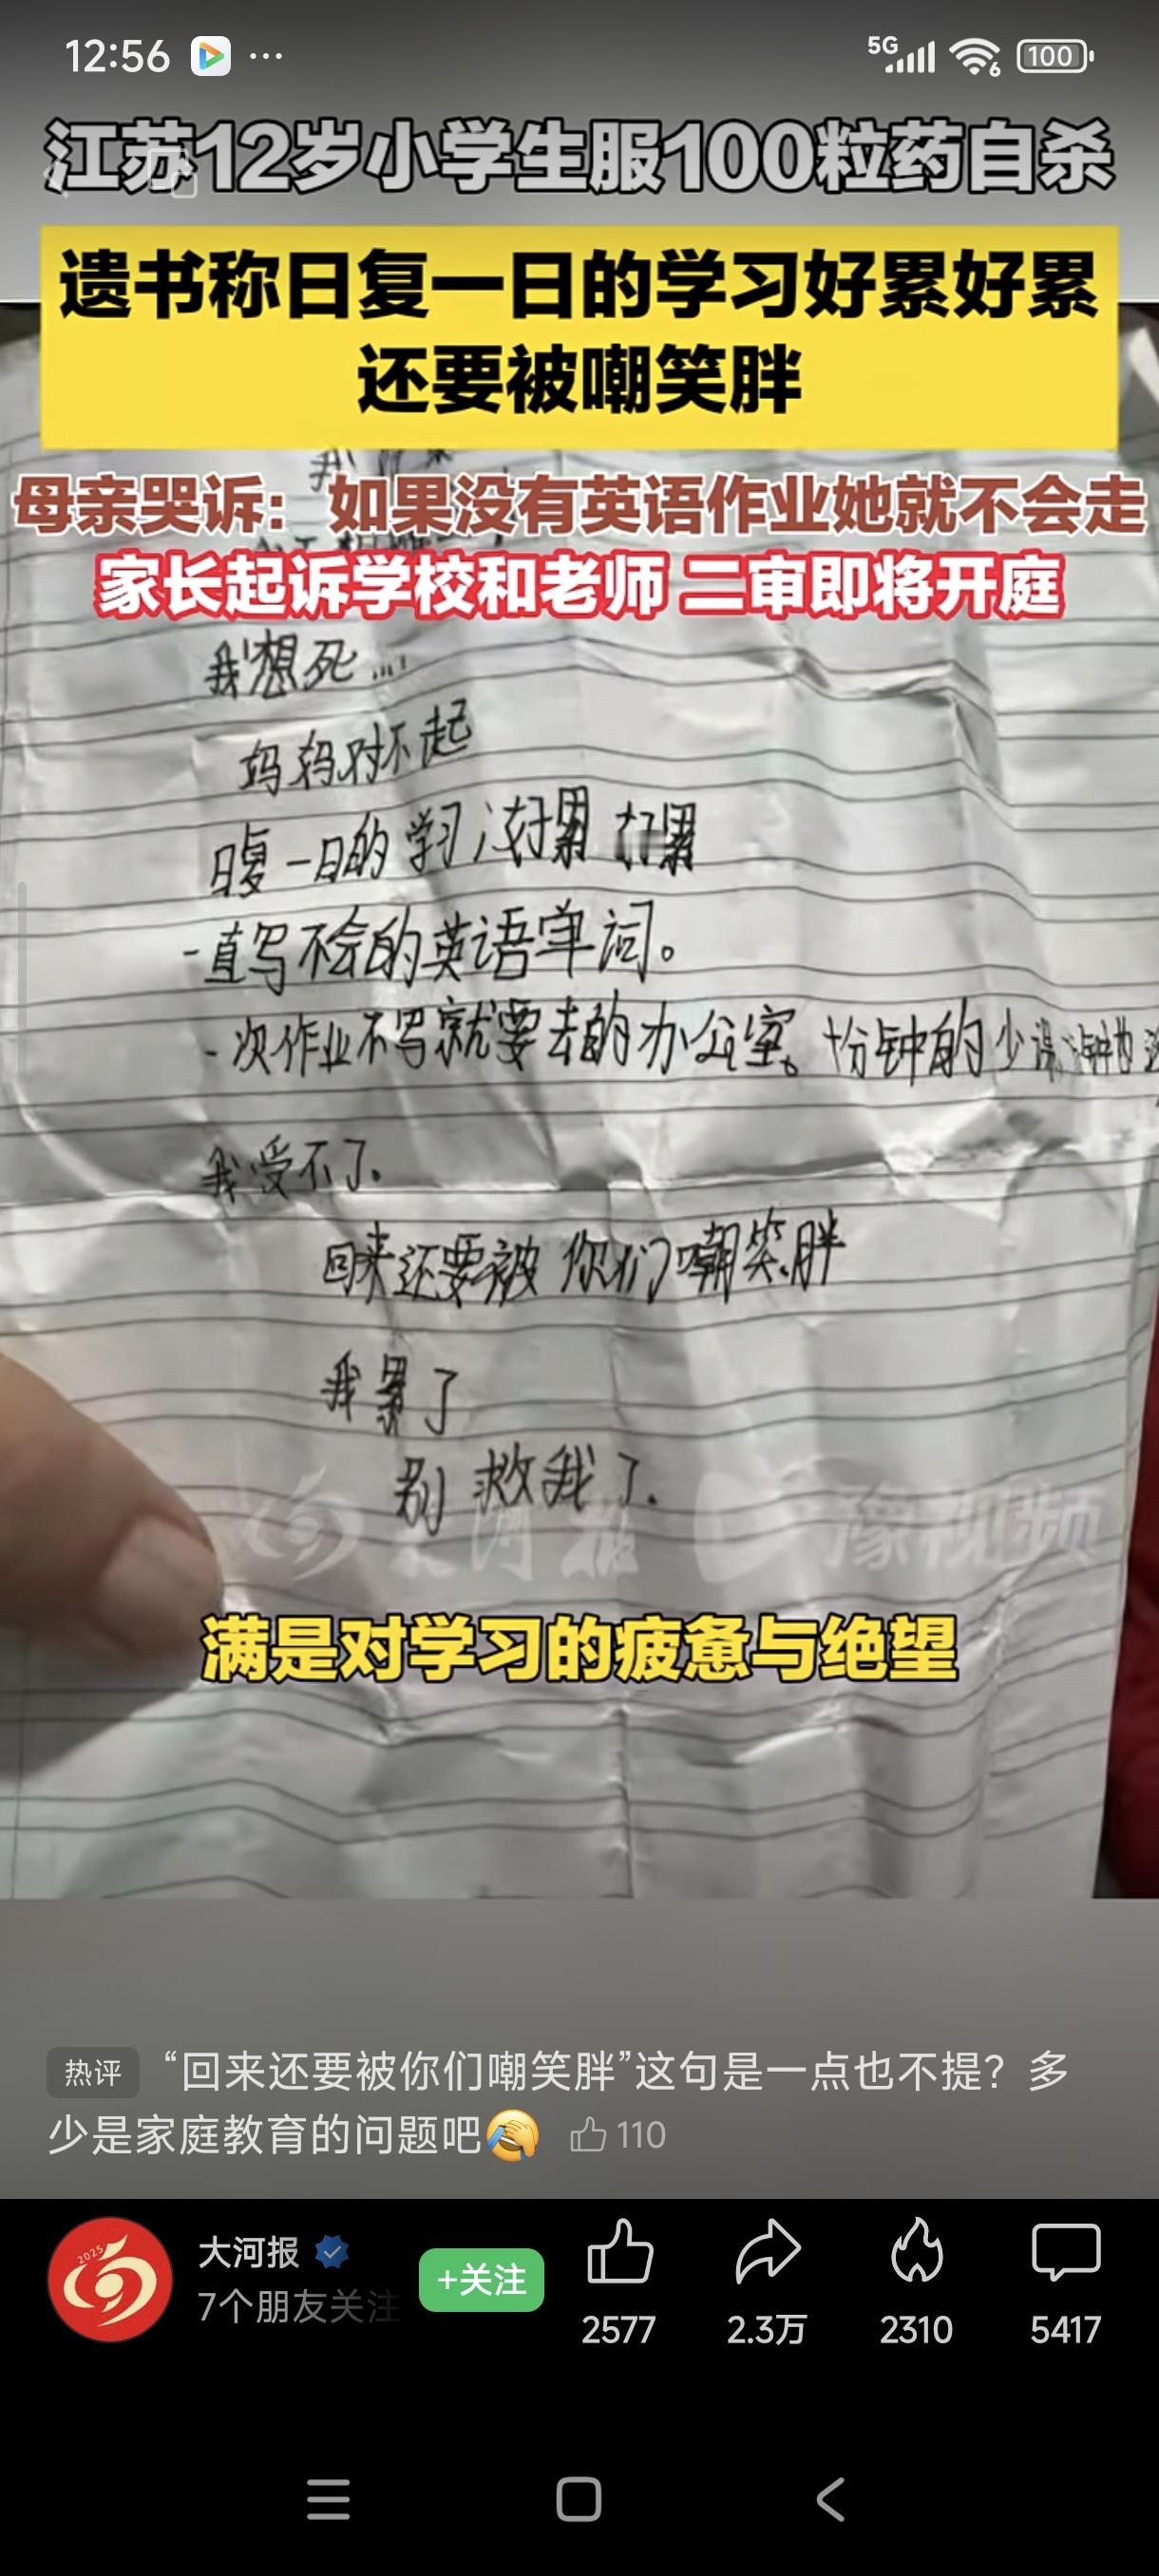 12:56
5G
6
100
江苏12岁小学生服100粒药自杀
遗书称日复一日的学习好累好累
还要被嘲笑胖
母亲哭诉：如果没有英语作业她就不会走
家长起诉学校和老师 二审即将开庭
我想死...
妈妈对不起
日复一日的学习，好累 好累
一直写不会的英语单词。
一次作业不写就要去的办公室。十分钟的少
我受不了.
回来还要被 你们嘲笑胖
我累了
别 救我了.
大河报 豫视频
满是对学习的疲惫与绝望
热评 “回来还要被你们嘲笑胖”这句是一点也不提？多
少是家庭教育的问题吧 110
2025
大河报
7个朋友关注
+关注
2577
2.3万
2310
5417